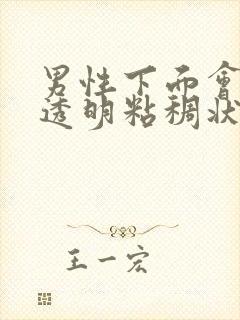 男性下面會
透明粘稠狀
王一宏